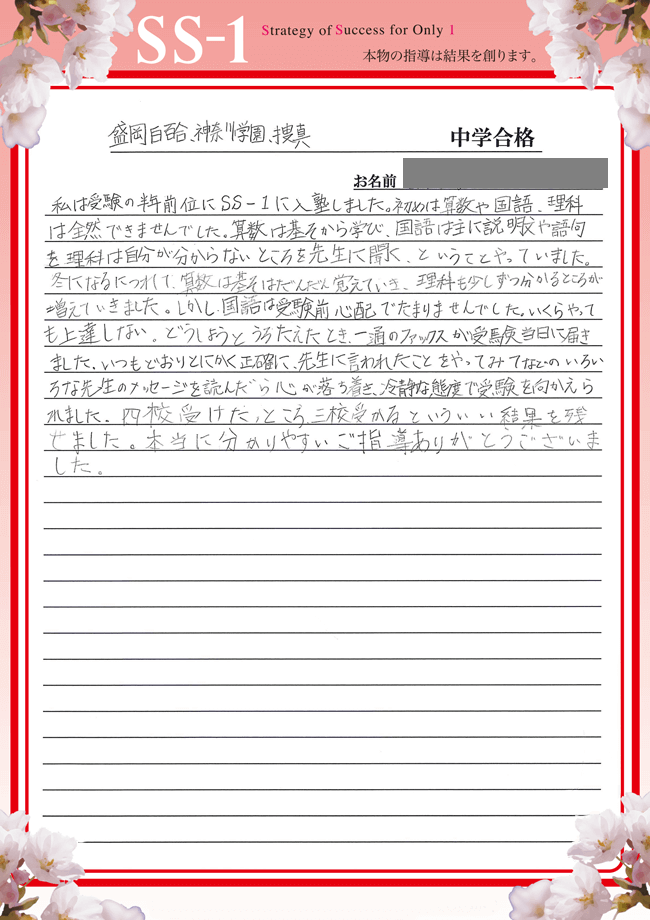 SS-1
Strategy of Success for Only 1
本物の指導は結果を創ります。
盛岡白百合、神奈川学園、捜真
中学合格
お名前
私は受験の半年前位にSS-1に入塾しました。初めは算数や国語、理科
は全然できませんでした。算数は基そから学び、国語は主に説明文や語句
を理科は自分が分からないところを先生に聞く、ということやっていました。
冬になるにつれて、算数は基そはだんだん覚えていき、理科も少しずつ分かるところが
増えていきました。しかし、国語は受験前心配でたまりませんでした。いくらやって
も上達しない。どうしようとうろたえたとき、一通のファックスが受験当日に届き
ました。いつもどおりとにかく正確に、先生に言われたことをやってみてなどのいろい
ろな先生のメッセージを読んだら心が落ち着き、冷静な態度で受験を向かえら
れました。四校受けたところ、三校受かるといういい結果を残
せました。本当に分かりやすいご指導ありがとうございま
した。